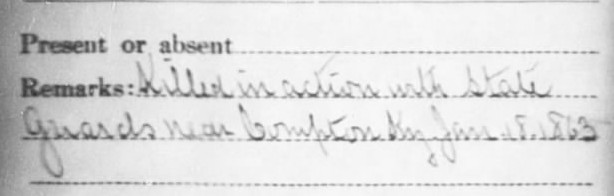 Present or absent
Remarks: Killed in action with State
Guards near Compton Ky, Jan 18. 1863